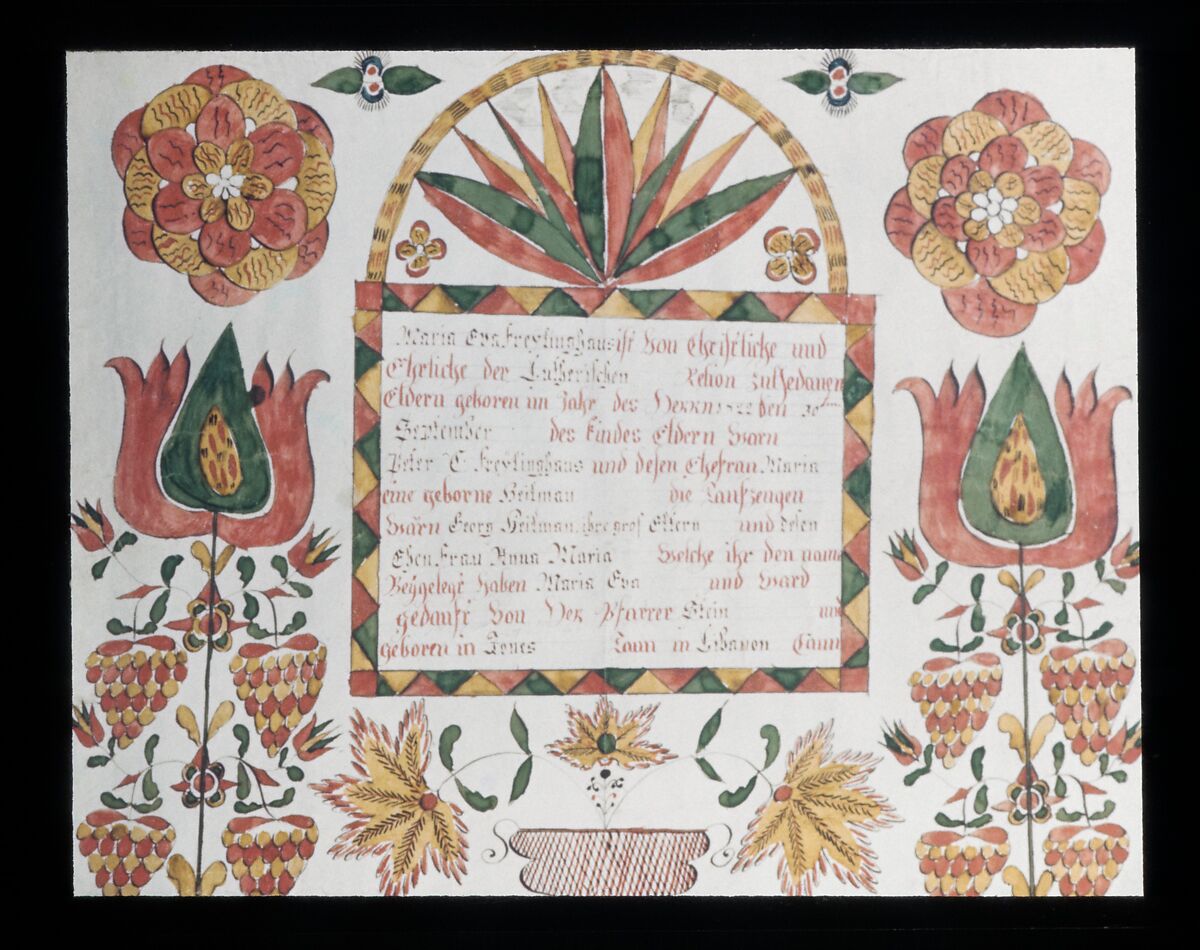 Maria Eva Freylinghaus ist Von Christliche und
Ehrliche der Lutherischen Relion zulgedangen
Eldern geboren im Jahr des HERRN 1822 den 30
September des Kindes Eldern Warn
Peter C Freylinghaus und desen Ehefrau Maria
eine geborne Heilman die Taufzeugen
Wärn Georg Heilman ihre gros Eltern und desen
Ehen Frau Anna Maria Welche ihr den name
Beygelegt haben Maria Eva und Ward
gedauft Von Her Pfarrer Stein und
geboren in Taun in Libanon Caun